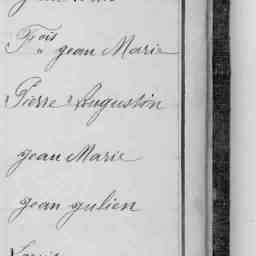 Fois Jean Marie
Pierre Augustin
Jean Marie
Jean Julien
Louis